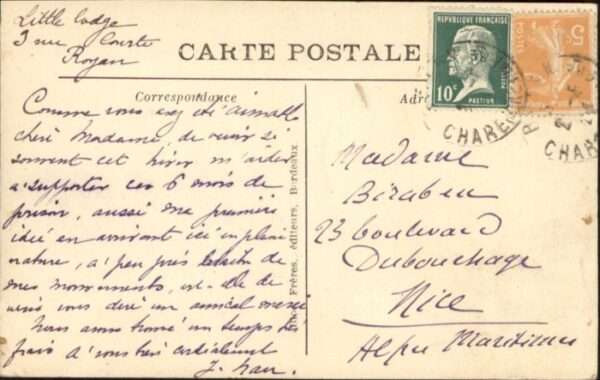 Little Lodge
3 rue Courte
Royan
CARTE POSTALE
Correspondance
Adr
REPUBLIQUE FRANÇAISE
POSTES
10c
PASTEUR
5c
POSTES
CHARE
CHAR
Comme vous avez été aimable
chère Madame, de venir si
souvent cet hiver m'aider
à supporter ces 6 mois de
prison, aussi ma première
idée en arrivant ici en pleine
nature, à peu près
de
mes mouvements, est-elle de
vous dire un amical merci
Nous avons trouvé un temps très
frais à vous très cordialement
J.
Frères, éditeurs, Bordeaux
Madame
Biraben
23 boulevard
Dubouchage
Nice
Alpes Maritimes